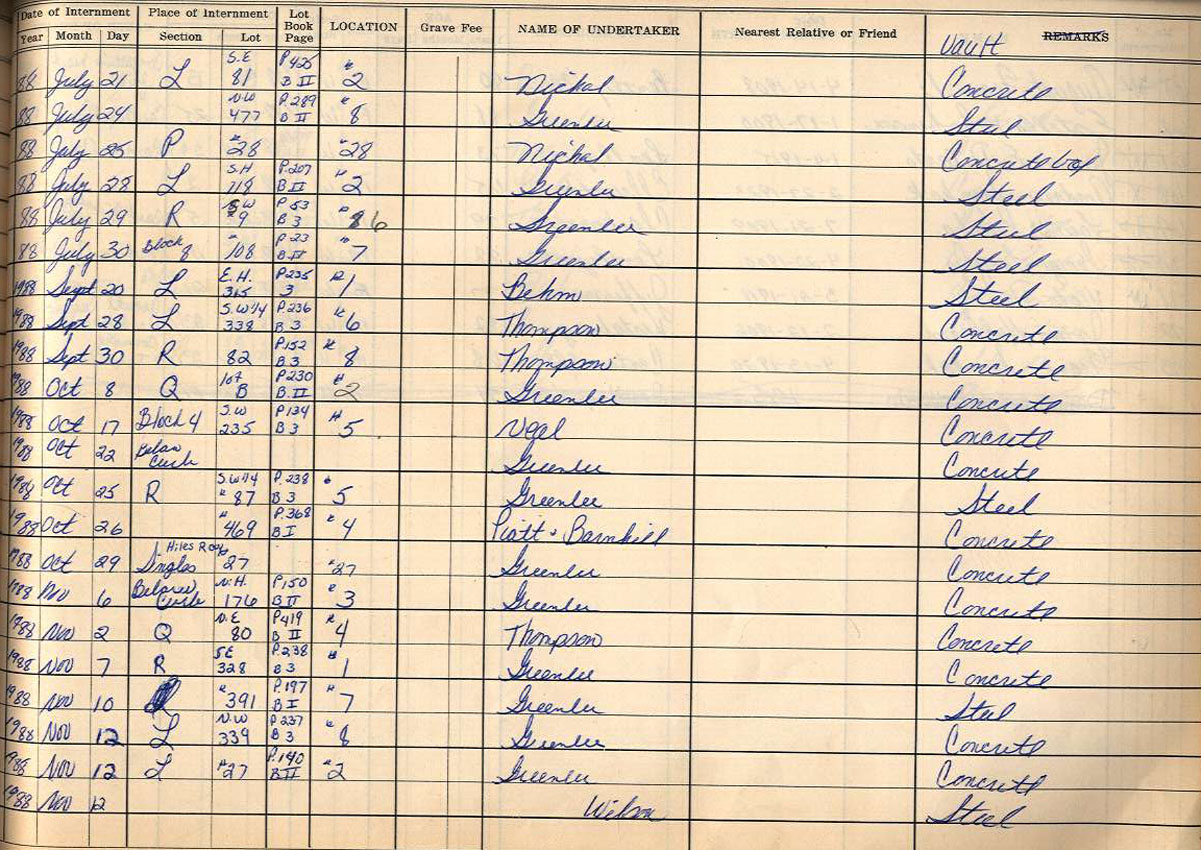 Date of Internment Place of Internment Lot Book Page LOCATION Grave Fee NAME OF UNDERTAKER Nearest Relative or Friend Vault REMARKS
Year Month Day Section Lot
88 July 21 L S.E 81 P425 B II # 2 Nickal Concrete
88 July 24 N.W 477 P.289 B II # 8 Greenlee Steel
88 July 25 P #28 #28 Nickal Concrete
88 July 28 L S.H 118 P.207 B II # 2 Greenlee Steel
88 July 29 R S.W 9 P 53 B 3 # 86 Greenlee Steel
88 July 30 Block 8 # 108 P.23 B II # 7 Greenlee Steel
1988 Sept 20 L E.H. 315 P.235 3 # 1 Behm Steel
1988 Sept 28 L S.W 1/4 338 P.236 B 3 # 6 Thompson Concrete
1988 Sept 30 R 82 P152 B 3 # 8 Thompson Concrete
1988 Oct 8 Q lot B P.230 B.II # 2 Greenlee Concrete
1988 Oct 17 Block 4 S.W 235 P134 B 3 # 5 Vogel Concrete
1988 Oct 22 Below Curb Greenlee Concrete
1988 Oct 25 R S.W 1/4 #87 P.238 B 3 # 5 Greenlee Steel
1988 Oct 26 # 469 P.368 B I # 4 Piatt & Barnhill Concrete
1988 Oct 29 Singles 27 #27 Greenlee Concrete
1988 Nov 6 Below Curb N.H. 176 P150 B II # 3 Greenlee Concrete
1988 Nov 2 Q N.E 80 P419 B II # 4 Thompson Concrete
1988 Nov 7 R SE 328 P.238 B 3 # 1 Greenlee Concrete
1988 Nov 10 # 391 P.197 B I # 7 Greenlee Steel
1988 Nov 12 L N.W 339 P.237 B 3 # 8 Greenlee Concrete
1988 Nov 12 L #27 P.140 B II # 2 Greenlee Concrete
1988 Nov 12 Wilson Steel